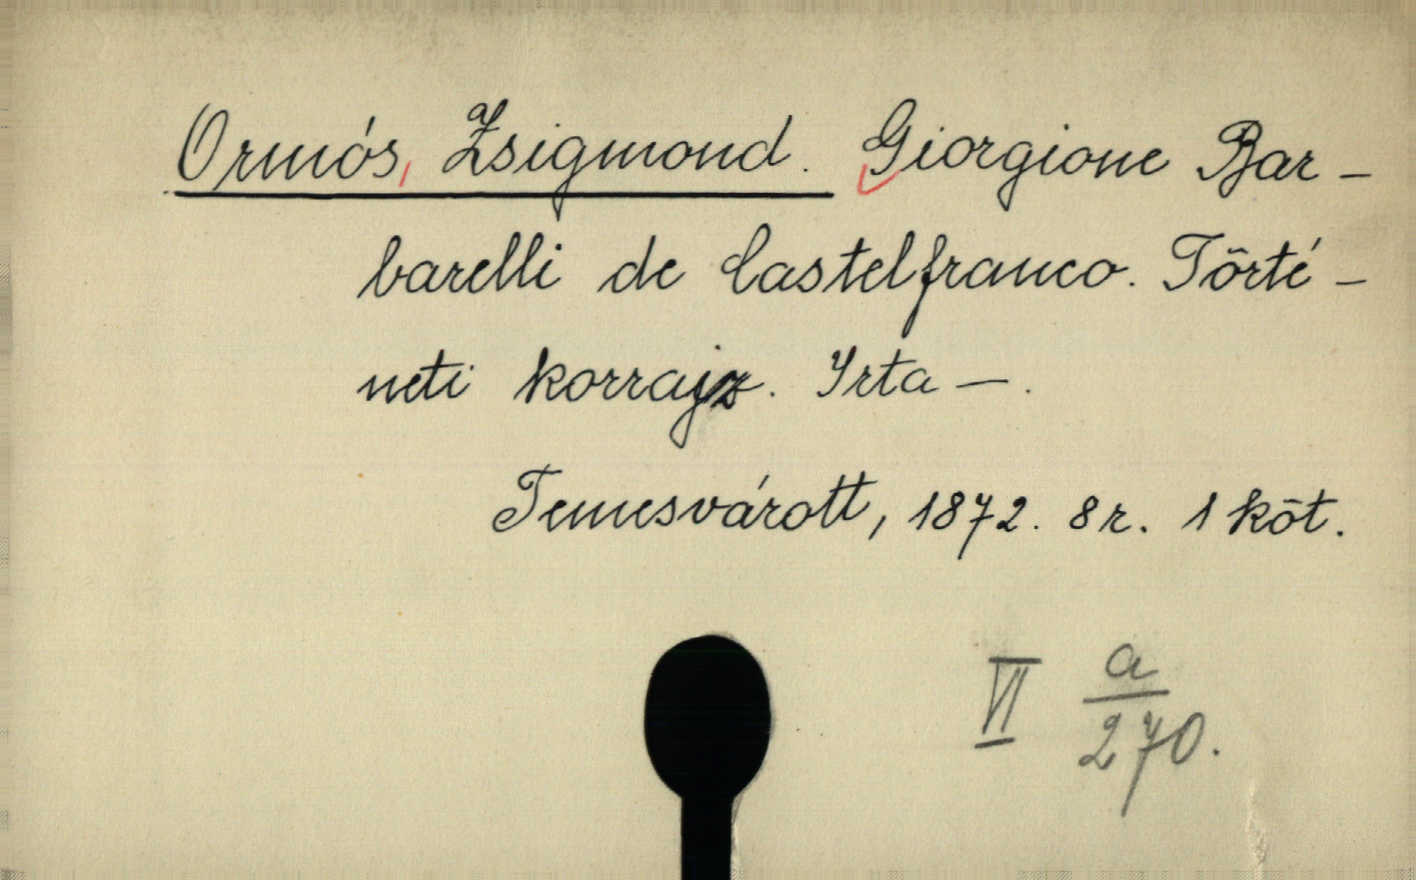 Ormós, Zsigmond. Giorgione Bar-
barelli de Castelfranco. Törté-
neti korrajz. Irta —.
Temesvárott, 1872. 8 r. 1 köt.
VI a/270.